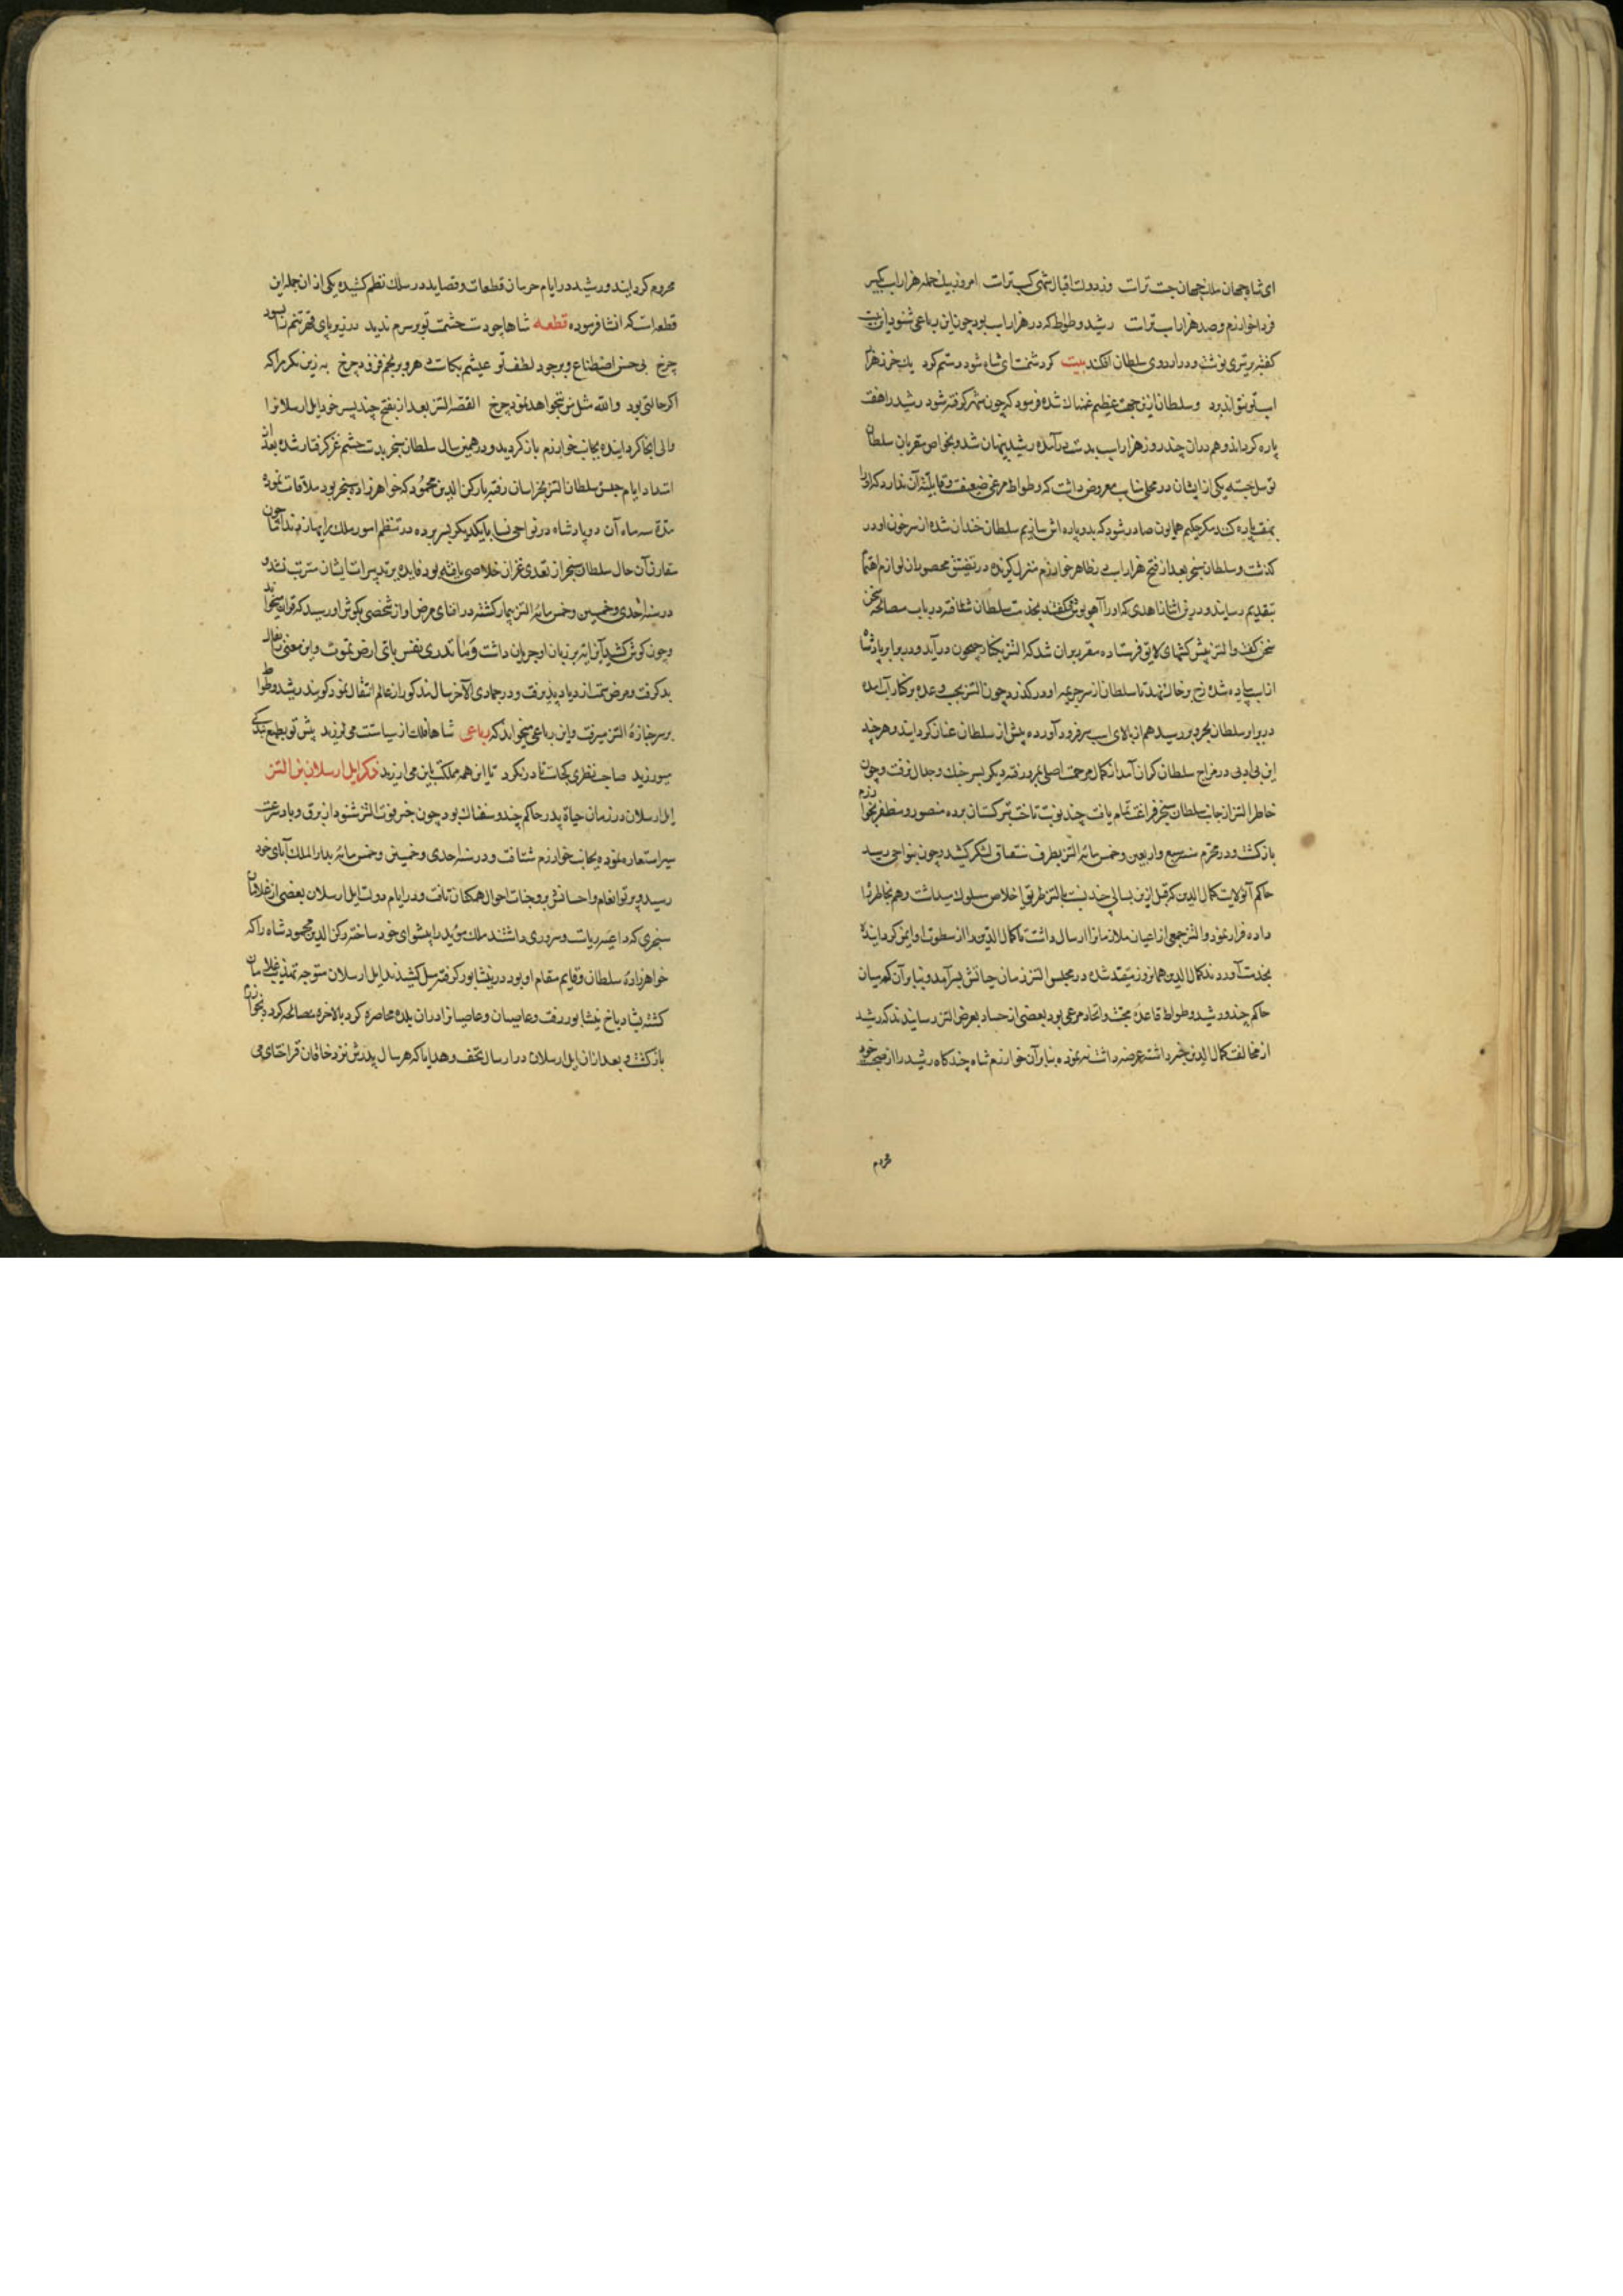 ای شاه جهان ملک جهان حسب تراست وز دولت اقبال شهی کسب تراست امروز بیک حمله هزاراسب بگیر
فردا خوارزم و صد هزار اسب تراست رشید وطواط که در هزاراسب بود چون این رباعی شنود این بیت
گفته بر تیری نوشت و در اردوی سلطان افکند بیت کر دشمنت ای شاه شود رستم کرد یک خر ز هزار
اسب تو نتواند برد و سلطان ازین جهت عظیم غضبناک شده فرمود که چون شهر گرفته شود رشید را هفت
پاره کردانند و هم دران چند روز هزاراسب بدست درآمده رشید پنهان شد و بخواص مقربان سلطان
توسل جسته یکی از ایشان در محلی مناسب معروض داشت که وطواط مرغی ضعیفست و قابلیت آن ندارد که او را
بهفت پاره کنند مکر حکیم همایون صادر شود که بدو پاره اش سازیم سلطان خندان شده از سر خون او در
کذشت و سلطان سنجر بعد از فتح هزاراسب بظاهر خوارزم منزل کزیده در تضییق محصوران لوازم اهتمام
بتقدیم رسانید و درین اثنا زاهدی که او را آهوپوش گفتند بخدمت سلطان شتافته در باب مصالحه سخن
سخن کفت و اتسز پیش کشهای لایق فرستاده مقرر بران شد که اتسز بکنار جیحون درآید و در برابر پادشاه
از اسب پیاده شده رخ بر خاک نهد تا سلطان از سر جریمه او در کذرد و چون اتسز بحسب وعده بر کنار آب آمده
دیدار سلطان بحر و بر رسید هم از بالای اسب سر فرود آورده پیش از سلطان عنان کردانید و هر چند
این بی ادبی در مزاج سلطان کران آمد از کمال مرحمت اصلی بمرو رفته دیکر بسر جنک و جدال نرفت و چون
خاطر اتسز از جانب سلطان سنجر فراغت تمام یافت چند نوبت تاخت بترکستان برده منصور و مظفر بخوارزم
بازکشت و در محرم سنه سبع و اربعین و خمس مائه اتسز بطرف سقناق لشکر کشید و چون بنواحی جند رسید
حاکم آنولایت کمال الدین که قبل ازین بسالی چند نسبت باتسز طریق اخلاص سلوک میداشت وهم بخاطر راه
داده فرار نمود و اتسز جمعی از اعیان ملازمانرا ارسال داشت تا کمال الدین را از سطوت او ایمن کردانیده
بخدمت آوردند کمال الدین همانروز مقید شده در مجلس اتسز زمان حیاتش بسر آمد و بنا بر آن که میان
حاکم جند و رشید وطواط قاعده محبت و اتحاد مرعی بود بعضی از حساد بعرض اتسز رسانیدند که رشید
از مخالفت کمال الدین خبر داشت و عرضه داشت نه نموده بنابرآن خوارزم شاه چند کاه رشید را از صحبت خود
محروم
محروم کردانید و رشید در ایام حرمان قطعات و قصاید در سلک نظم کشیده یکی از ان جمله این
قطعه است که انشا فرموده قطعه شاها چو دست حشمت تو بر سرم ندید در زیر پای قهر تنم را بسود
چرخ بی حسن اصطناع و بر جود لطف تو عیشم بکاست دهر و رنجم فزود چرخ به زین نکر مرا که
اکر حالتی بود والله مثل من بنجواهد نمود چرخ القصه اتسز بعد از فتح جند پسر خود ایل ارسلانرا
والی آنجا کردانیده بجانب خوارزم بازکردید و در همین سال سلطان سنجر بدست حشم غز کرفتار شده بعد از
امتداد ایام حبس سلطان اتسز بخراسان رفته با رکن الدین محمود که خواهرزاده سنجر بود ملاقات نموده
مدة سه ماه آن دو پادشاه در نواحی نسا با یکدیکر بسر برده در تنظیم امور ملک رایها زدند اما چون
مقارن آن حال سلطان سنجر از تعدی غزان خلاصی یافته بود فایده بر تدبیرات ایشان مترتب نشد و
در سنه احدی و خمسین و خمس مائه اتسز بیمار کشته در اثنای مرض آواز شخصی بکوش او رسید که قرآن میخواند
و چون کوش کشید آن آیه بر زبان او جریان داشت و ما تدری نفس بای ارض تموت و این معنی را بفال
بد کرفت و مرض سمت ازدیاد پذیرفت و در جمادی الآخر سال مذکور از عالم انتقال نمود کویند رشید وطواط
بر سر جنازه اتسز میرفت و این رباعی میخواند که رباعی شاها فلک از سیاستت می لرزید پیش تو بطبع بندکی
میورزید صاحب نظری کجاست تا درنکرد تا این همه مملکت باین می ارزید ذکر ایل ارسلان بن اتسز
ایل ارسلان در زمان حیاة پدر حاکم جند و سقناق بود چون خبر فوت اتسز شنود از برق و باد سرعت
سیر استعاره نموده بجانب خوارزم شتافت و در سنه احدی و خمسین و خمس مائه بدار الملک آبای خود
رسید و پرتو انعام و احسانش بر وجنات احوال همکنان تافت و در ایام دولت ایل ارسلان بعضی از غلامان
سنجری که داعیه ریاست و سروری داشتند ملک مؤید را پیشوای خود ساخته رکن الدین محمود شاه را که
خواهرزاده سلطان و قایم مقام او بود در نیشابور کرفته میل کشیدند ایل ارسلان متوجه تهذیب غلامان
کشته بشادیاخ نیشابور رفت و عاصیان را دران بلده محاصره کرد بالاخره مصالحه کرده بخوارزم
بازکشت و بعد ازان ایل ارسلان در ارسال تحف و هدایا که هر سال پدرش نزد خاقان قراختای می